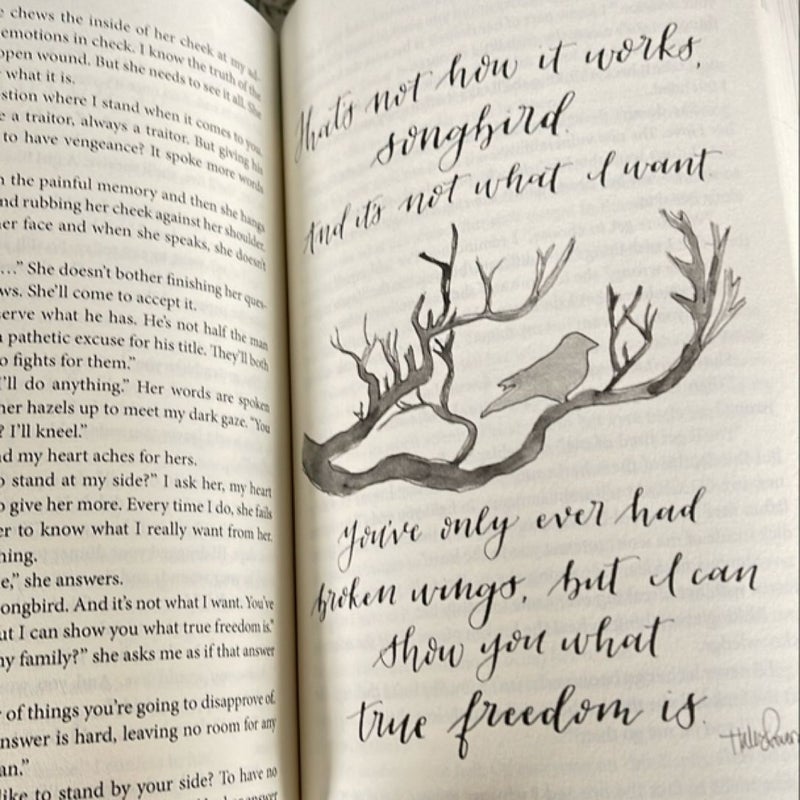 chews the inside of her cheek at my ad-
emotions in check. I know the truth of the
open wound. But she needs to see it all. She
what it is.
stion where I stand when it comes to you.
e a traitor, always a traitor. But giving his
to have vengeance? It spoke more words
the painful memory and then she hangs
nd rubbing her cheek against her shoulder.
er face and when she speaks, she doesn't
…" She doesn't bother finishing her ques-
ws. She'll come to accept it.
serve what he has. He's not half the man
pathetic excuse for his title. They'll both
o fights for them."
'll do anything." Her words are spoken
her hazels up to meet my dark gaze. "You
? I'll kneel."
d my heart aches for hers.
stand at my side?" I ask her, my heart
o give her more. Every time I do, she fails
er to know what I really want from her.
hing.
e," she answers.
ongbird. And it's not what I want. You've
ut I can show you what true freedom is."
y family?" she asks me as if that answer
of things you're going to disapprove of.
nswer is hard, leaving no room for any
an."
like to stand by your side? To have no
answer
That's not how it works,
songbird.
And it's not what I want.
You've only ever had
broken wings, but I can
show you what
true freedom is.